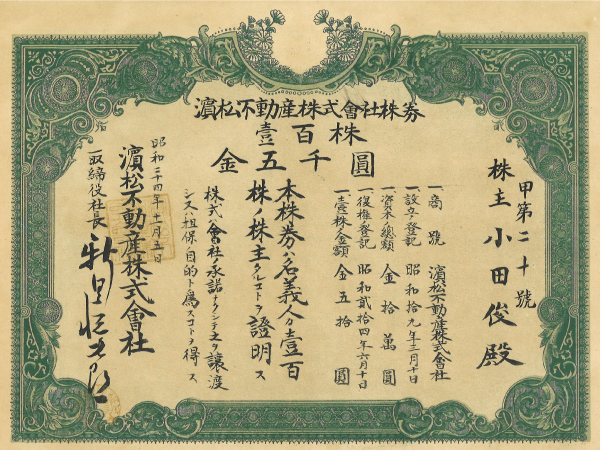 濱松不動産株式會社株券
壹百株
金五千圓
甲第二十號
株主 小田俊殿
一商號 濱松不動産株式會社
一設立登記 昭和拾九年三月十日
一資本ノ總額 金拾萬圓
一復權登記 昭和貳拾四年六月十日
一壹株金額 金五拾圓
本株券ハ名義人ガ壹百
株ノ株主タルコトヲ證明ス
株式ハ會社ノ承諾ナクシテ之ヲ譲渡
シ又ハ担保ノ目的ト為スコトヲ得ス
昭和二十四年十一月五日
濱松不動産株式會社
取締役社長